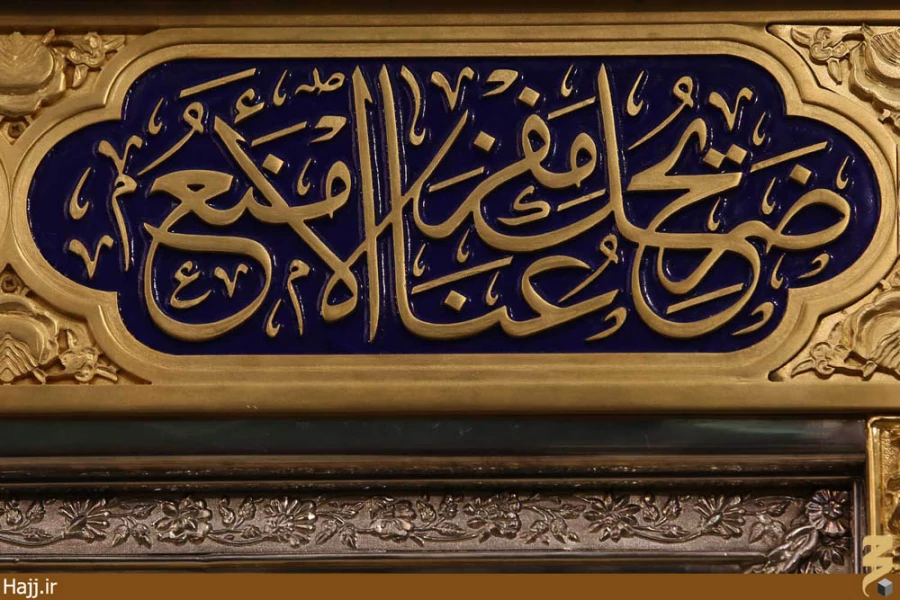 ضَرِيحُكَ مَفْزَعُنَا الْأَمْنَعُ
Hajj.ir